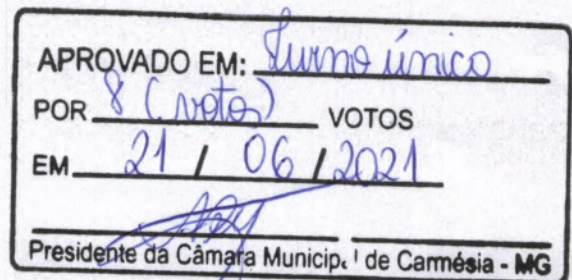 APROVADO EM: Turno único
POR 8 (votos) VOTOS
EM 21 / 06 / 2021
Presidente da Câmara Municip. l de Carmésia - MG